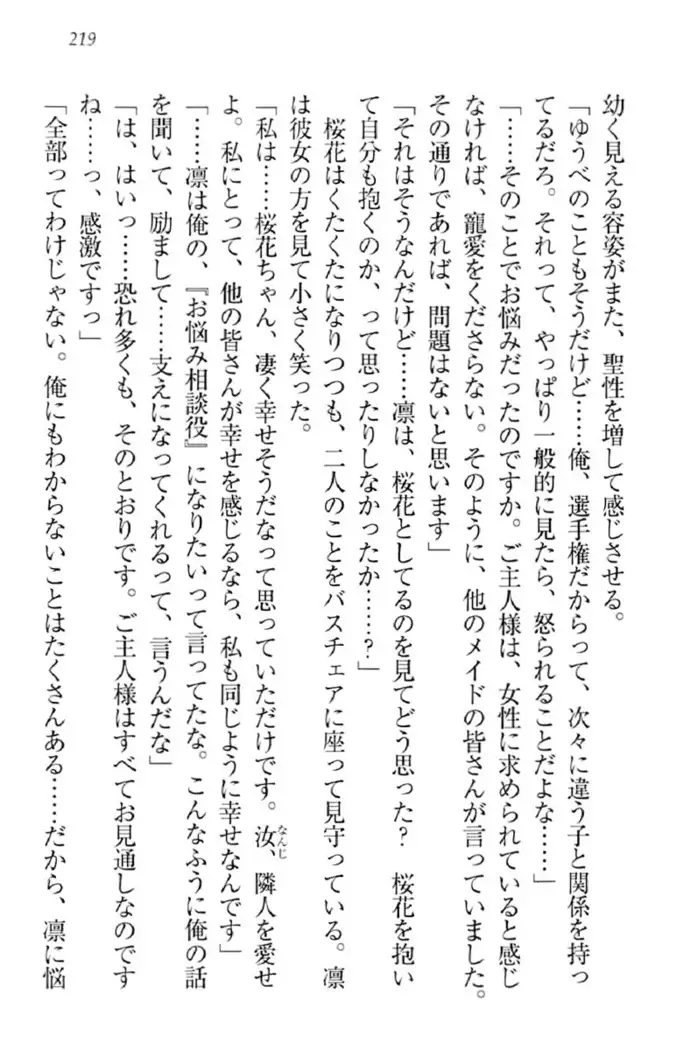 219
幼く見える容姿がまた、聖性を増して感じさせる。
「ゆうべのこともそうだけど……俺、選手権だからって、次々に違う子と関係を持っ
てるだろ。それって、やっぱり一般的に見たら、怒られることだよな……」
「……そのことでお悩みだったのですか。ご主人様は、女性に求められていると感じ
なければ、寵愛をくださらない。そのように、他のメイドの皆さんが言っていました。
その通りであれば、問題はないと思います」
「それはそうなんだけど……凛は、桜花としてるのを見てどう思った？　桜花を抱い
て自分も抱くのか、って思ったりしなかったか……？」
桜花はくたくたになりつつも、二人のことをバスチェアに座って見守っている。凛
は彼女の方を見て小さく笑った。
「私は……桜花ちゃん、凄く幸せそうだなって思っていただけです。汝、隣人を愛せ
なんじ
よ。私にとって、他の皆さんが幸せを感じるなら、私も同じように幸せなんです」
「……凛は俺の、『お悩み相談役』になりたいって言ってたな。こんなふうに俺の話
を聞いて、励まして……支えになってくれるって、言うんだな」
「は、はいっ……恐れ多くも、そのとおりです。ご主人様はすべてお見通しなのです
ね……っ、感激ですっ」
「全部ってわけじゃない。俺にもわからないことはたくさんある……だから、凛に悩